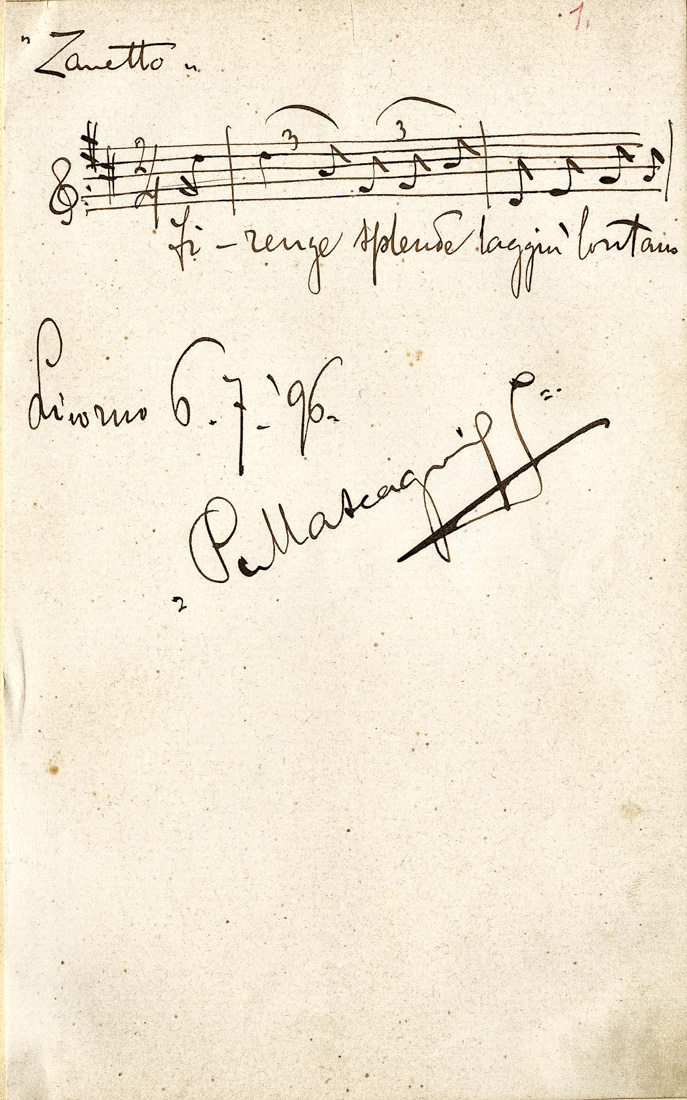 1.
"Zanetto"
3 3
2/4
Fi - renze splende laggiù lontano
Livorno 6.7.'96.
P. Mascagni